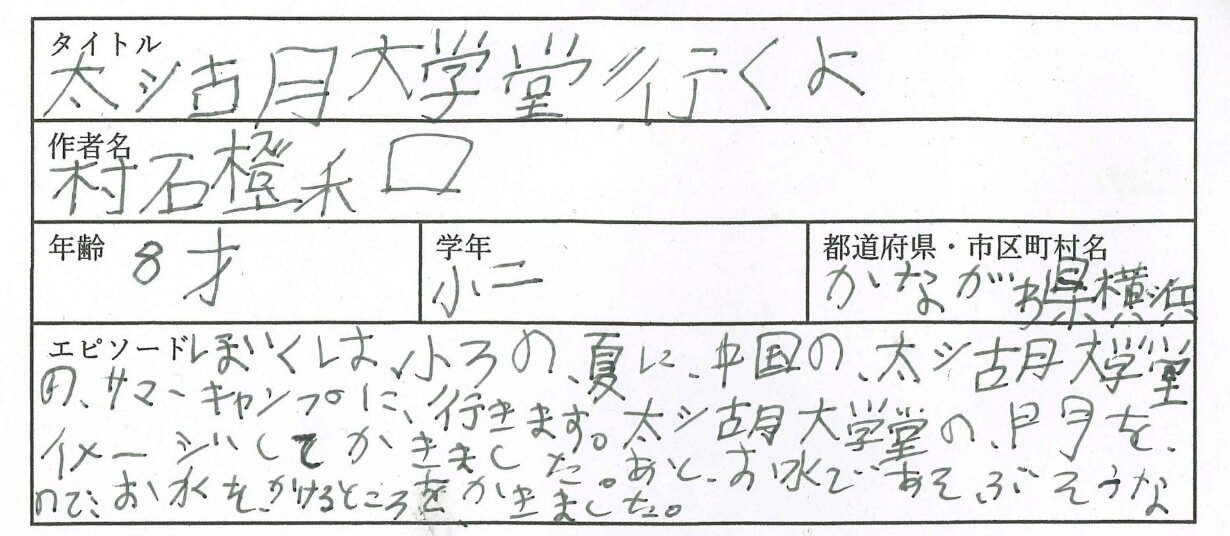 タイトル
太湖大学堂行くよ
作者名
村石橙禾
年齢 8才
学年 小二
都道府県・市区町村名
かながわ県横浜
エピソード ぼくは、小3の、夏に、中国の、太湖大学堂
の、サマーキャンプに、行きます。太湖大学堂の、門を、
イメージしてかきました。あと、お水であそぶそうな
ので、お水をかけるところをかきました。